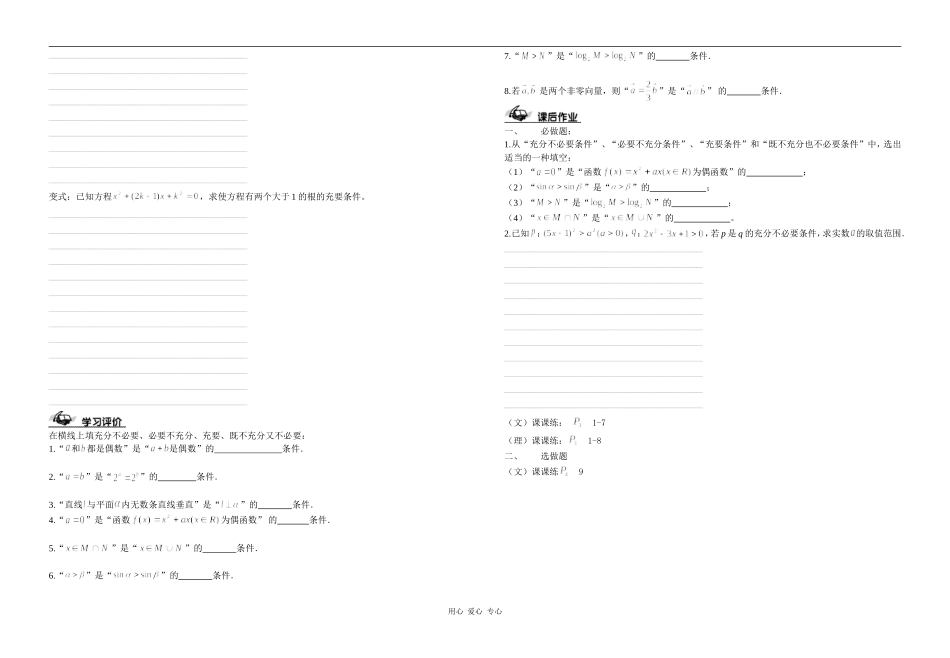 变式：已知方程x²+(2k-1)x+k²=0，求使方程有两个大于1的根的充要条件。
学习评价
在横线上填充分不必要、必要不充分、充要、既不充分又不必要：
1.“a和b都是偶数”是“a+b是偶数”的________条件.
2.“a=b”是“2ᵃ=2ᵇ”的________条件.
3.“直线l与平面α内无数条直线垂直”是“l⊥α”的_______条件.
4.“a=0”是“函数f(x)=x²+ax(x∈R)为偶函数” 的_______条件.
5.“x∈M∩N”是“x∈M∪N”的_______条件.
6.“α>β”是“sinα>sinβ”的_______条件.
7.“M>N”是“log₂M>log₂N”的_______条件.
8.若a⃗,b⃗ 是两个非零向量，则“a⃗=2/3b⃗”是“a⃗//b⃗” 的_______条件.
课后作业
一、 必做题：
1.从“充分不必要条件”、“必要不充分条件”、“充要条件”和“既不充分也不必要条件”中，选出
适当的一种填空：
（1）“a=0”是“函数f(x)=x²+ax(x∈R)为偶函数”的____________；
（2）“sinα>sinβ”是“α>β”的____________；
（3）“M>N”是“log₂M>log₂N”的____________；
（4）“x∈M∩N”是“x∈M∪N”的____________。
2.已知p：(5x-1)²>a²(a>0)，q：2x²-3x+1>0，若p是q的充分不必要条件，求实数a的取值范围.
（文）课课练： 1-7
（理）课课练： 1-8
二、 选做题
（文）课课练 9
用心 爱心 专心